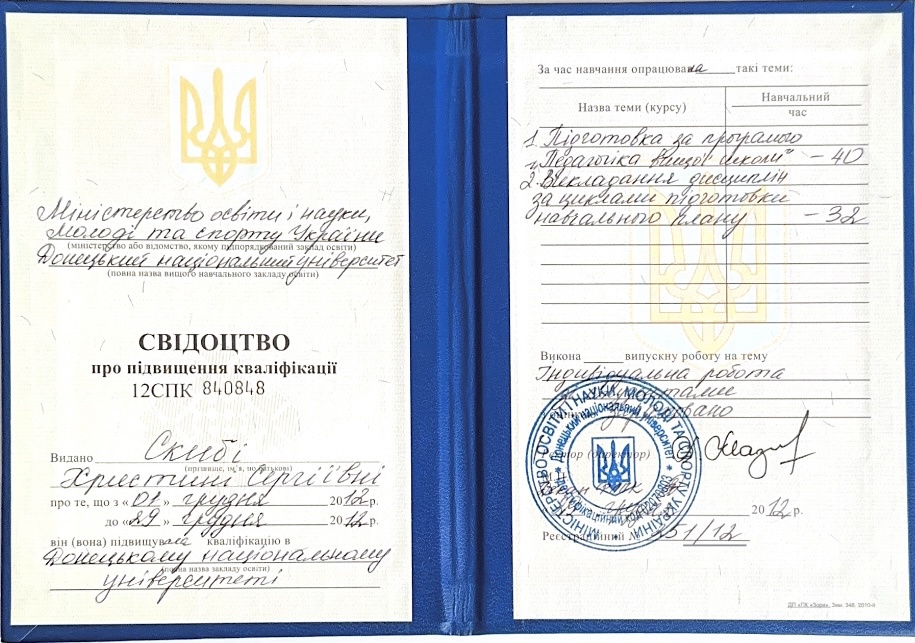 Міністерство освіти і науки,
молоді та спорту України
(міністерство або відомство, якому підпорядкований заклад освіти)
Донецький національний університет
(повна назва вищого навчального закладу освіти)
СВІДОЦТВО
про підвищення кваліфікації
12СПК 840848
Видано Скибі
(прізвище, ім'я, по батькові)
Христині Сергіївні
про те, що з «01» грудня 2012р.
до «29» грудня 2012р.
він (вона) підвищувала кваліфікацію в
Донецькому національному
(повна назва закладу освіти)
університеті
За час навчання опрацювала такі теми:
Назва теми (курсу)
Навчальний
час
1. Підготовка за програмою
"Педагогіка вищої школи" – 40
2. Викладання дисциплін
за циклами підготовки
навчального плану – 32
Викона випускну роботу на тему
Індивідуальна робота
(директор)
2012р.
51/12
МІНІСТЕРСТВО ОСВІТИ І НАУКИ, МОЛОДІ ТА СПОРТУ УКРАЇНИ
Донецький національний університет
ДП «ПК «Зоря». Зам. 348. 2010-II